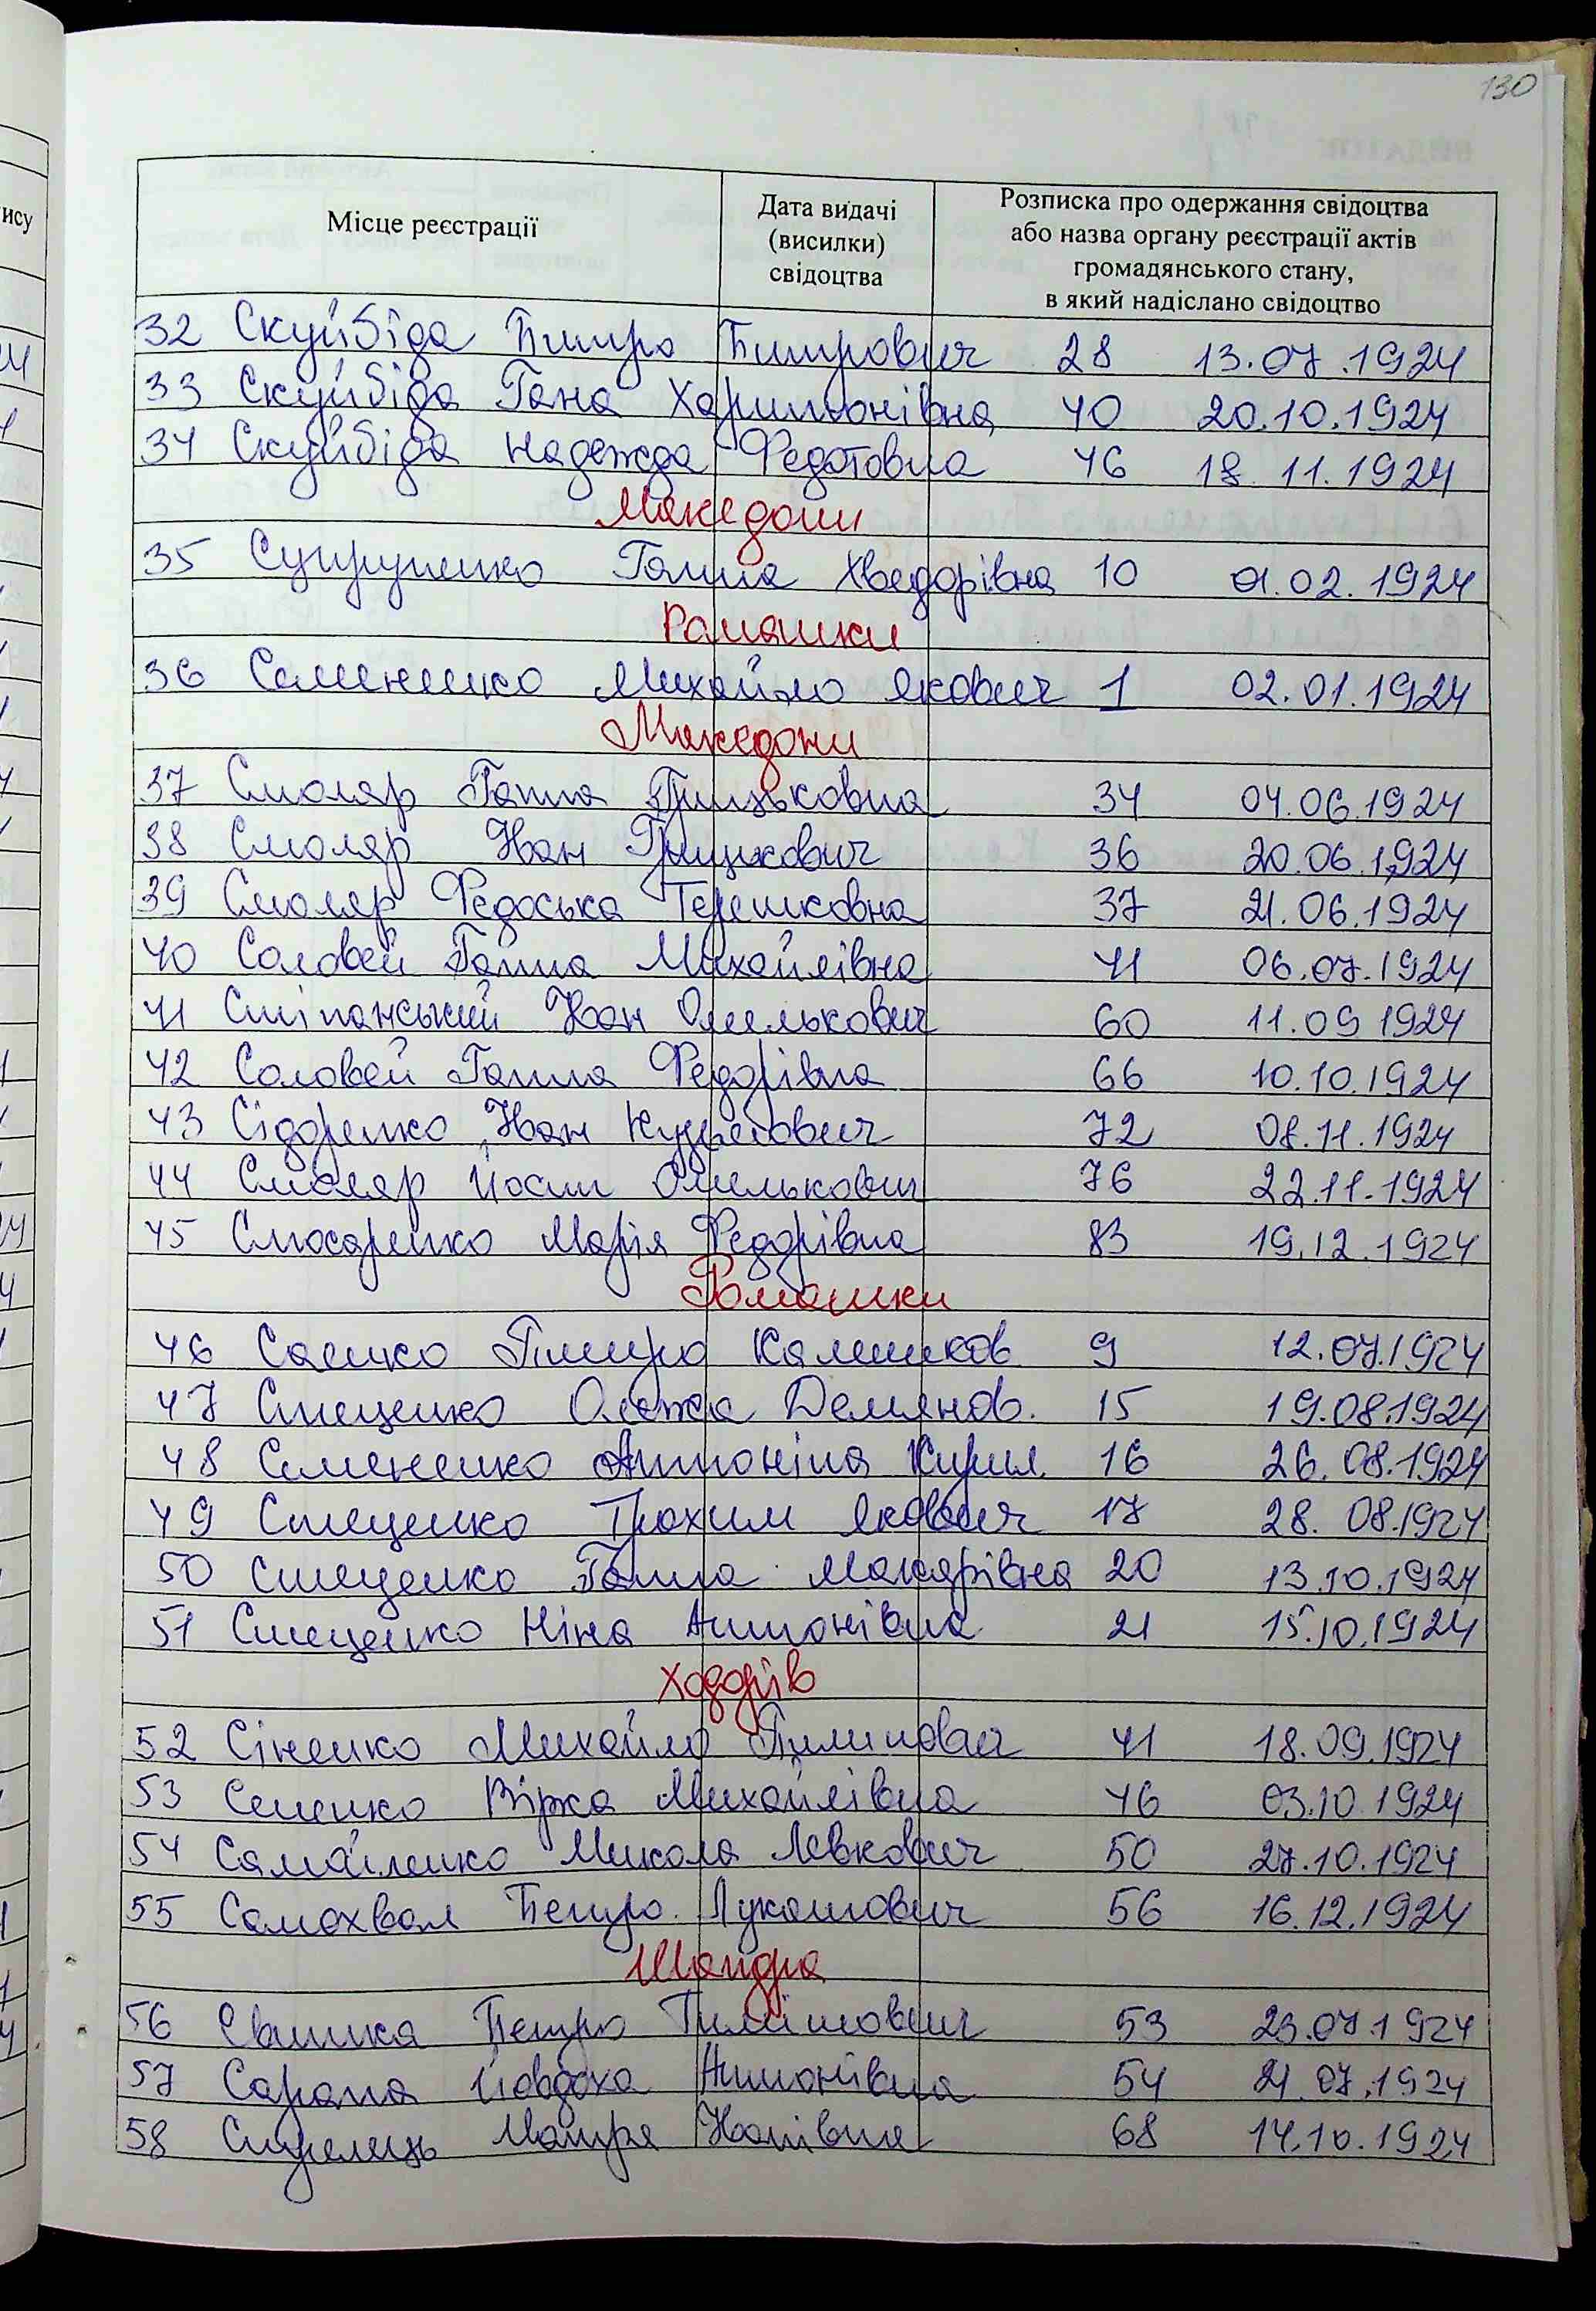 130
ису
Місце реєстрації
Дата видачі
(висилки)
свідоцтва
Розписка про одержання свідоцтва
або назва органу реєстрації актів
громадянського стану,
в який надіслано свідоцтво
32 Скуйбіда Питро Питрович 28 13.07.1924
33 Скуйбіда Гана Харитонівна 40 20.10.1924
34 Скуйбіда Надежда Федотовна 46 18.11.1924
Македони
35 Супруненко Галина Хведорівна 10 01.02.1924
Ромашки
36 Семененко Михайло Якович 1 02.01.1924
Македони
37 Смоляр Ганна Грицьковна 34 04.06.1924
38 Смоляр Іван Грицкович 36 20.06.1924
39 Смоляр Федоська Терешковна 37 21.06.1924
40 Соловей Ганна Михайлівна 41 06.07.1924
41 Стіпанський Іван Омелькович 60 11.09 1924
42 Соловей Ганна Федорівна 66 10.10.1924
43 Сідоренко Іван Кузьмович 72 08.11.1924
44 Смоляр Йосип Омелькович 76 22.11.1924
45 Слюсаренко Марія Федорівна 83 19.12.1924
Ромашки
46 Саенко Питро Калеников 9 12.07.1924
47 Стеценко Олёкса Демянов. 15 19.08.1924
48 Семененко Антоніна Кирил. 16 26.08.1924
49 Стеценко Трохим Якович 17 28.08.1924
50 Стеценко Ганна Макарівна 20 13.10.1924
51 Стеценко Ніна Антонівна 21 15.10.1924
Ходорів
52 Сіненко Михайло Пилипович 41 18.09.1924
53 Сененко Вірка Михайлівна 46 03.10.1924
54 Самайленко Микола Левкович 50 27.10.1924
55 Самохвал Петро Лукашович 56 16.12.1924
Шандра
56 Свитка Петро 53 23.07.1924
57 Сарана Йовдоха Антонівна 54 21.07.1924
58 Стрелець Мотря Іванівна 68 14.10.1924